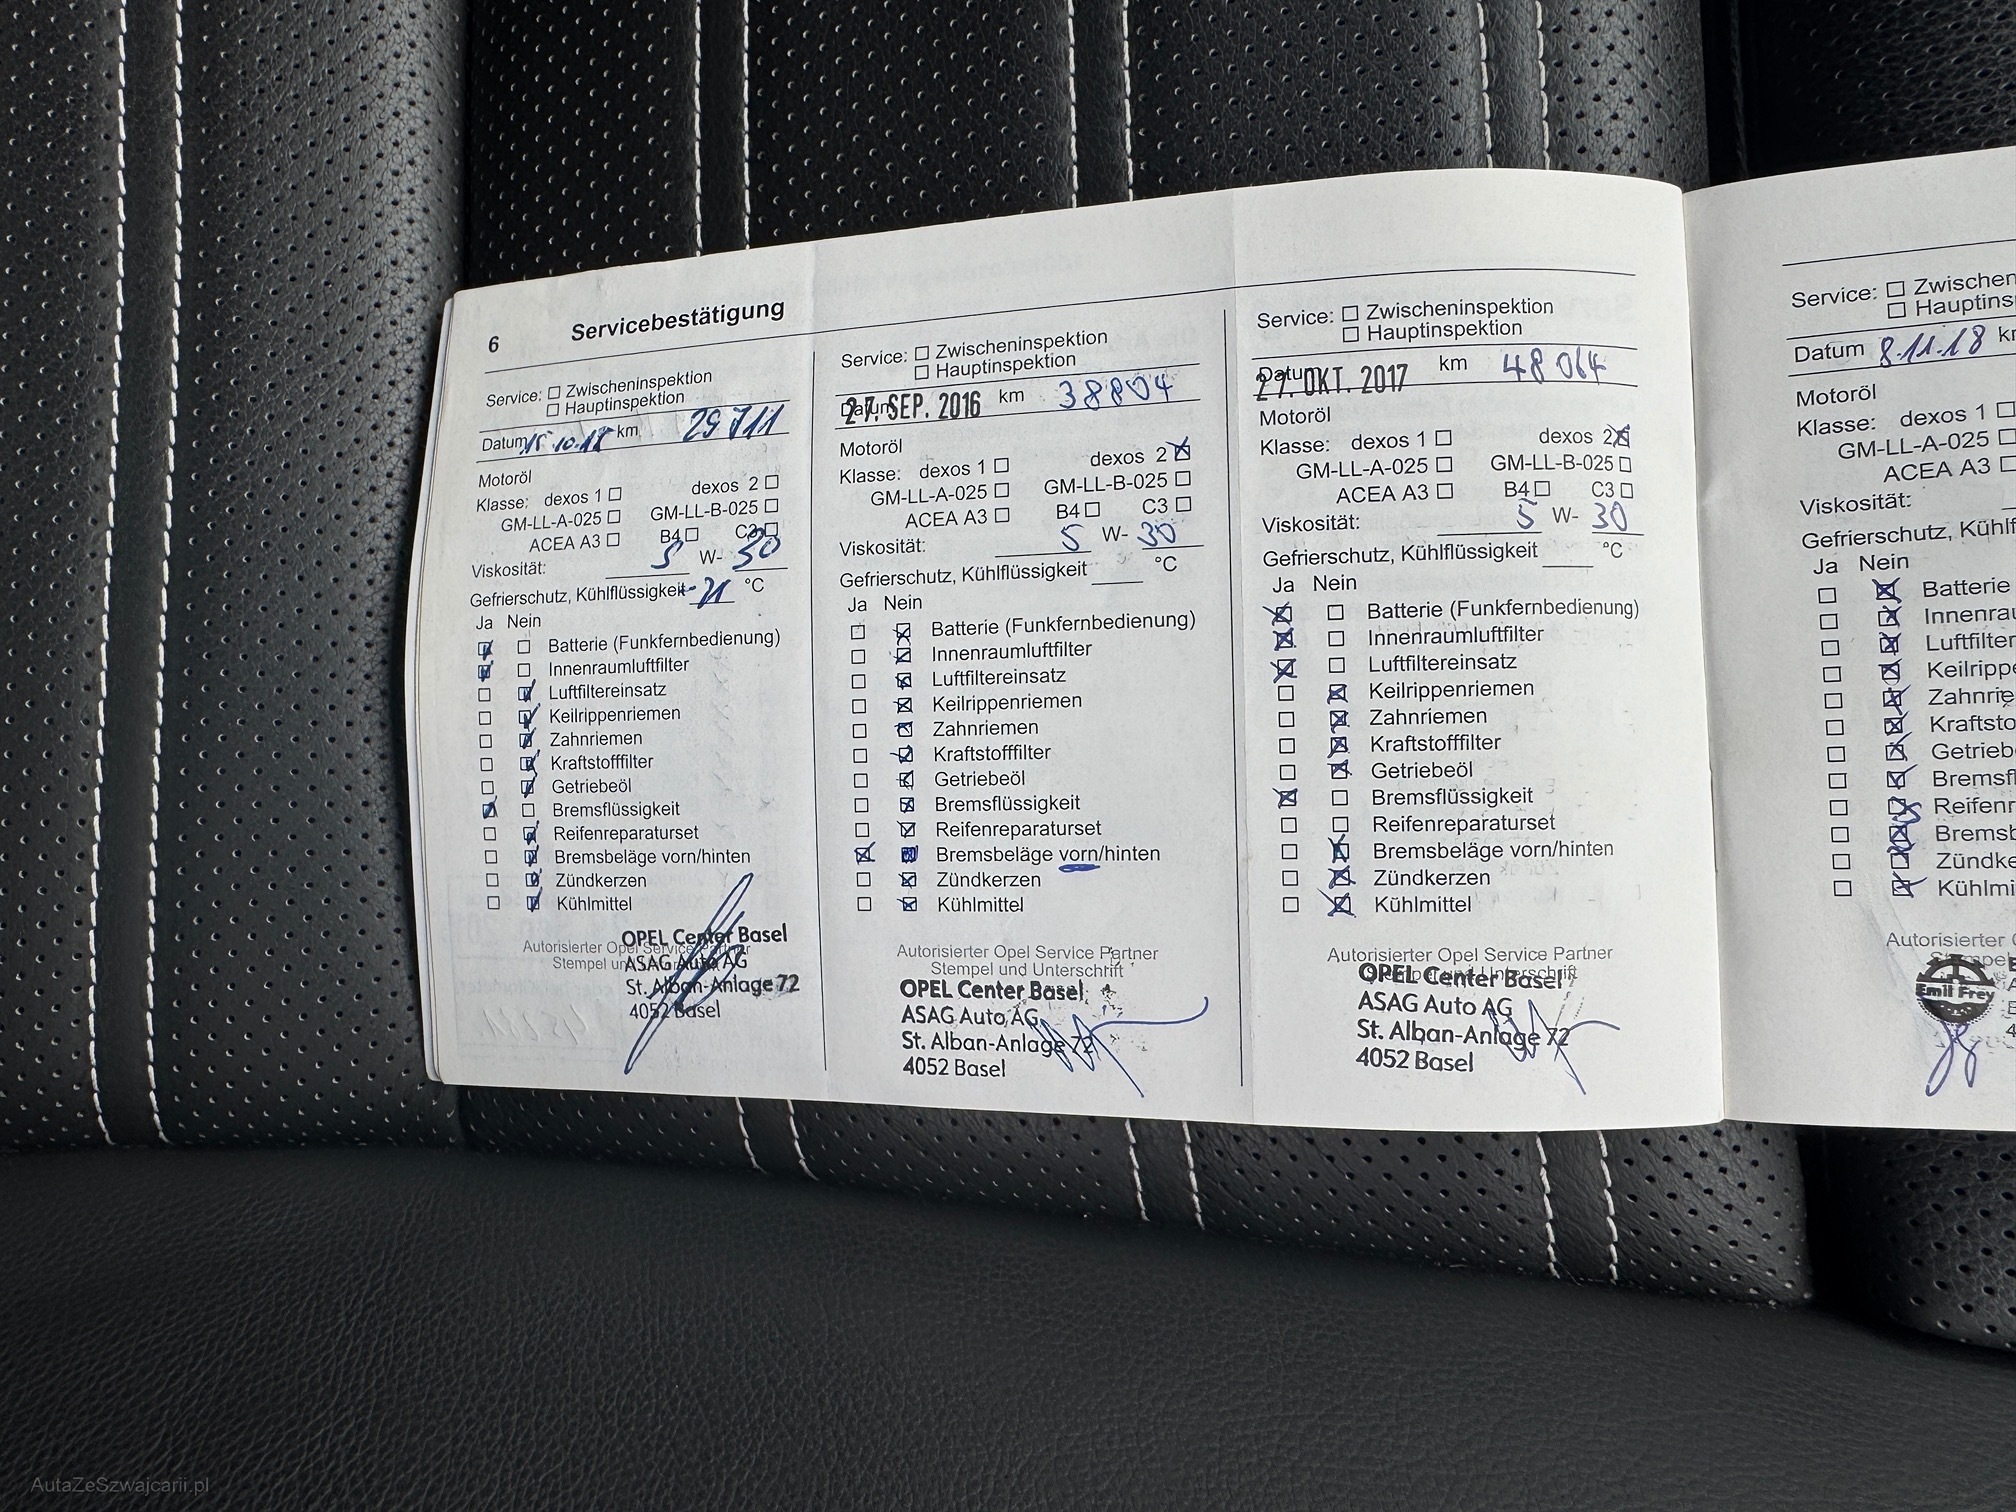 6 Servicebestätigung
Service: Zwischeninspektion
Hauptinspektion
Datum km 29711
Motoröl
Klasse: dexos 1 dexos 2
GM-LL-A-025 GM-LL-B-025
ACEA A3 B4 C3
Viskosität: 5 W- 30
Gefrierschutz, Kühlflüssigkeit °C
Ja Nein
Batterie (Funkfernbedienung)
Innenraumluftfilter
Luftfiltereinsatz
Keilrippenriemen
Zahnriemen
Kraftstofffilter
Getriebeöl
Bremsflüssigkeit
Reifenreparaturset
Bremsbeläge vorn/hinten
Zündkerzen
Kühlmittel
Autorisierter Opel Service Partner
Stempel
OPEL Center Basel
ASAG Auto AG
St. Alban-Anlage 72
4052 Basel
Service: Zwischeninspektion
Hauptinspektion
Datum 27. SEP. 2016 km 38804
Motoröl
Klasse: dexos 1 dexos 2
GM-LL-A-025 GM-LL-B-025
ACEA A3 B4 C3
Viskosität: 5 W- 30
Gefrierschutz, Kühlflüssigkeit °C
Ja Nein
Batterie (Funkfernbedienung)
Innenraumluftfilter
Luftfiltereinsatz
Keilrippenriemen
Zahnriemen
Kraftstofffilter
Getriebeöl
Bremsflüssigkeit
Reifenreparaturset
Bremsbeläge vorn/hinten
Zündkerzen
Kühlmittel
Autorisierter Opel Service Partner
Stempel und Unterschrift
OPEL Center Basel
ASAG Auto AG
St. Alban-Anlage 72
4052 Basel
Service: Zwischeninspektion
Hauptinspektion
Datum 27. OKT. 2017 km 48064
Motoröl
Klasse: dexos 1 dexos 2
GM-LL-A-025 GM-LL-B-025
ACEA A3 B4 C3
Viskosität: 5 W- 30
Gefrierschutz, Kühlflüssigkeit °C
Ja Nein
Batterie (Funkfernbedienung)
Innenraumluftfilter
Luftfiltereinsatz
Keilrippenriemen
Zahnriemen
Kraftstofffilter
Getriebeöl
Bremsflüssigkeit
Reifenreparaturset
Bremsbeläge vorn/hinten
Zündkerzen
Kühlmittel
Autorisierter Opel Service Partner
Stempel und Unterschrift
OPEL Center Basel
ASAG Auto AG
St. Alban-Anlage 72
4052 Basel
Service: Zwischen
Hauptins
Datum 8.11.18 km
Motoröl
Klasse: dexos 1
GM-LL-A-025
ACEA A3
Viskosität:
Gefrierschutz, Kühlfl
Ja Nein
Batterie
Innenrau
Luftfilter
Keilrippe
Zahnrie
Kraftsto
Getrieb
Bremsfl
Reifenr
Bremsb
Zündke
Kühlmi
Autorisierter
Stempel
Emil Frey
AutaZeSzwajcarii.pl